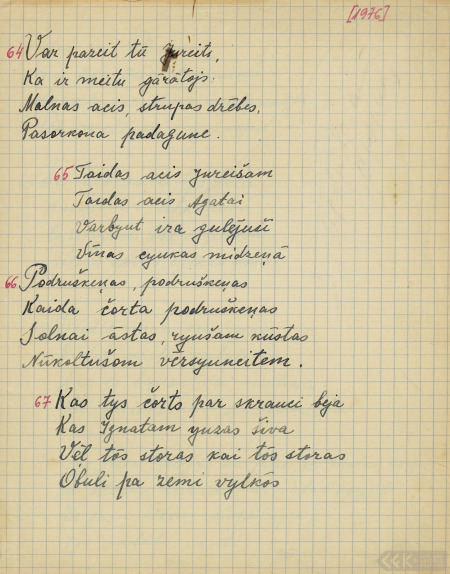 [1976]
64 Var pazeit tū jureits,
Ka ir meitu gārātojs.
Malnas acis, strupas drēbes,
Pasorkona padagune.
65 Taidas acis Jureišam
Taidas acis Agatai
Varbyut ira gulējuši
Vīnas cyukas midzeņā
66 Podruškeņas, podruškeņas
Kaida čorta podruškeņas
Solnai āstas, ryušam kūstas
Nūkoltušom vērsyuneitem.
67 Kas tys čorts par skrauci beja
Kas Ignatam yuzas šiva
Vēl tōs storas kai tōs storas
Obuli pa zemi vylkōs